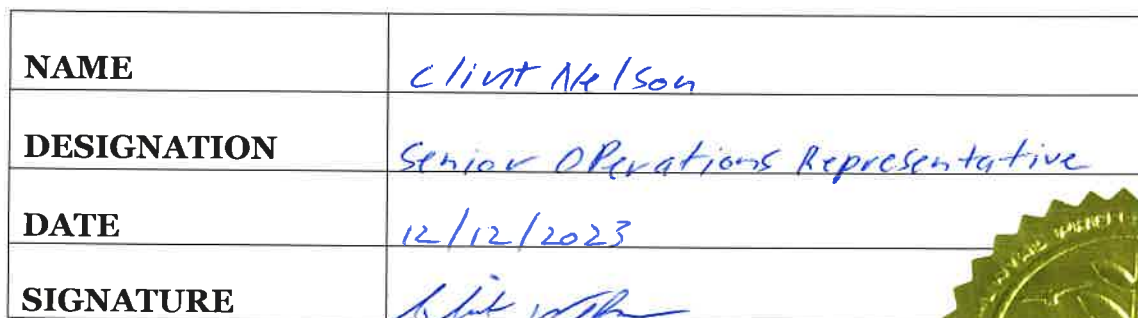 NAME Clint Nelson
DESIGNATION Senior Operations Representative
DATE 12/12/2023
SIGNATURE